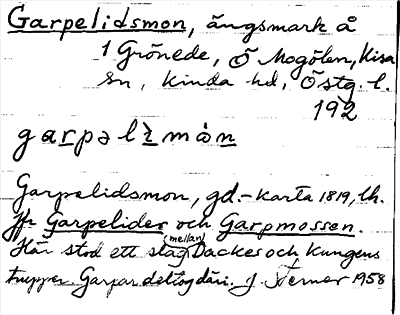 Garpelidsmon, ängsmark å
1 Grönede, Ö Mogölen, Kisa
sn, Kinda hd, Östg. l.
192
garpəlɩ̀zmón
Garpelidsmon, gd.-karta 1819, lh.
Jfr Garpelider och Garpmossen.
Här stod ett slag mellan Dackes och kungens
trupper. Garpar deltog däri. J. Werner 1958